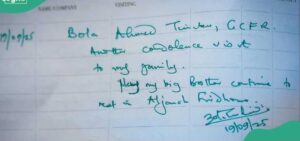 NAME/COMPANY VISITING
19/09/25 Bola Ahmed Tinubu, GCFR.
Another condolence visit
to my family.
May my big Brother continue to
rest in Aljanah Firdaus.
19/09/25